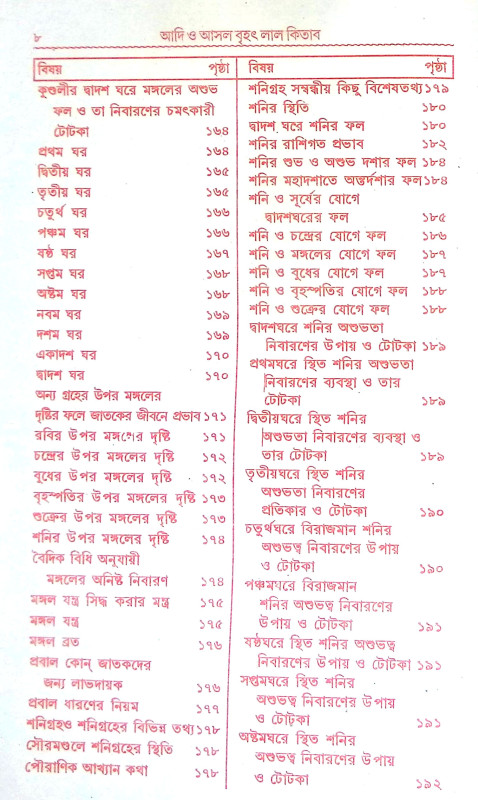 ৮ আদি ও আসল বৃহৎ লাল কিতাব
বিষয় পৃষ্ঠা
কুণ্ডলীর দ্বাদশ ঘরে মঙ্গলের অশুভ
ফল ও তা নিবারণের চমৎকারী
টোটকা ১৬৪
প্রথম ঘর ১৬৪
দ্বিতীয় ঘর ১৬৫
তৃতীয় ঘর ১৬৫
চতুর্থ ঘর ১৬৬
পঞ্চম ঘর ১৬৬
ষষ্ঠ ঘর ১৬৭
সপ্তম ঘর ১৬৮
অষ্টম ঘর ১৬৮
নবম ঘর ১৬৯
দশম ঘর ১৬৯
একাদশ ঘর ১৭০
দ্বাদশ ঘর ১৭০
অন্য গ্রহের উপর মঙ্গলের
দৃষ্টির ফলে জাতকের জীবনে প্রভাব ১৭১
রবির উপর মঙ্গলের দৃষ্টি ১৭১
চন্দ্রের উপর মঙ্গলের দৃষ্টি ১৭২
বুধের উপর মঙ্গলের দৃষ্টি ১৭২
বৃহস্পতির উপর মঙ্গলের দৃষ্টি ১৭৩
শুক্রের উপর মঙ্গলের দৃষ্টি ১৭৩
শনির উপর মঙ্গলের দৃষ্টি ১৭৪
বৈদিক বিধি অনুযায়ী
মঙ্গলের অনিষ্ট নিবারণ ১৭৪
মঙ্গল যন্ত্র সিদ্ধ করার মন্ত্র ১৭৫
মঙ্গল যন্ত্র ১৭৫
মঙ্গল ব্রত ১৭৬
প্রবাল কোন্ জাতকদের
জন্য লাভদায়ক ১৭৬
প্রবাল ধারণের নিয়ম ১৭৭
শনিগ্রহও শনিগ্রহের বিভিন্ন তথ্য ১৭৮
সৌরমণ্ডলে শনিগ্রহের স্থিতি ১৭৮
পৌরাণিক আখ্যান কথা ১৭৮
বিষয় পৃষ্ঠা
শনিগ্রহ সম্বন্ধীয় কিছু বিশেষতথ্য ১৭৯
শনির স্থিতি ১৮০
দ্বাদশ ঘরে শনির ফল ১৮০
শনির রাশিগত প্রভাব ১৮২
শনির শুভ ও অশুভ দশার ফল ১৮৪
শনির মহাদশাতে অন্তর্দশার ফল ১৮৪
শনি ও সূর্যের যোগে
দ্বাদশঘরের ফল ১৮৫
শনি ও চন্দ্রের যোগে ফল ১৮৬
শনি ও মঙ্গলের যোগে ফল ১৮৭
শনি ও বুধের যোগে ফল ১৮৭
শনি ও বৃহস্পতির যোগে ফল ১৮৮
শনি ও শুক্রের যোগে ফল ১৮৮
দ্বাদশঘরে শনির অশুভতা
নিবারণের উপায় ও টোটকা ১৮৯
প্রথমঘরে স্থিত শনির অশুভতা
নিবারণের ব্যবস্থা ও তার
টোটকা ১৮৯
দ্বিতীয়ঘরে স্থিত শনির
অশুভতা নিবারণের ব্যবস্থা ও
তার টোটকা ১৮৯
তৃতীয়ঘরে স্থিত শনির
অশুভতা নিবারণের
প্রতিকার ও টোটকা ১৯০
চতুর্থঘরে বিরাজমান শনির
অশুভত্ব নিবারণের উপায়
ও টোটকা ১৯০
পঞ্চমঘরে বিরাজমান
শনির অশুভত্ব নিবারণের
উপায় ও টোটকা ১৯১
ষষ্ঠঘরে স্থিত শনির অশুভত্ব
নিবারণের উপায় ও টোটকা ১৯১
সপ্তমঘরে স্থিত শনির
অশুভত্ব নিবারণের উপায়
ও টোটকা ১৯১
অষ্টমঘরে স্থিত শনির
অশুভত্ব নিবারণের উপায়
ও টোটকা ১৯২